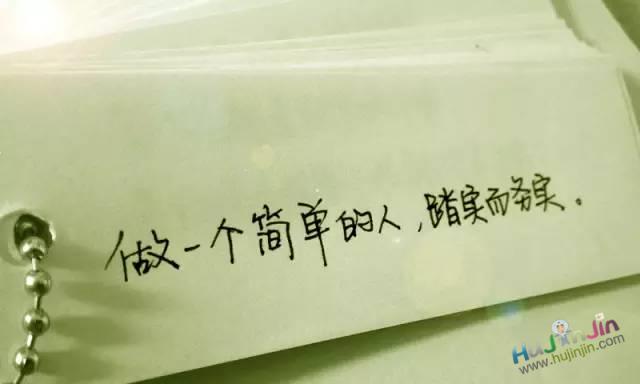 做一个简单的人，踏实而务实。
HuJinJin
www.hujinjin.com